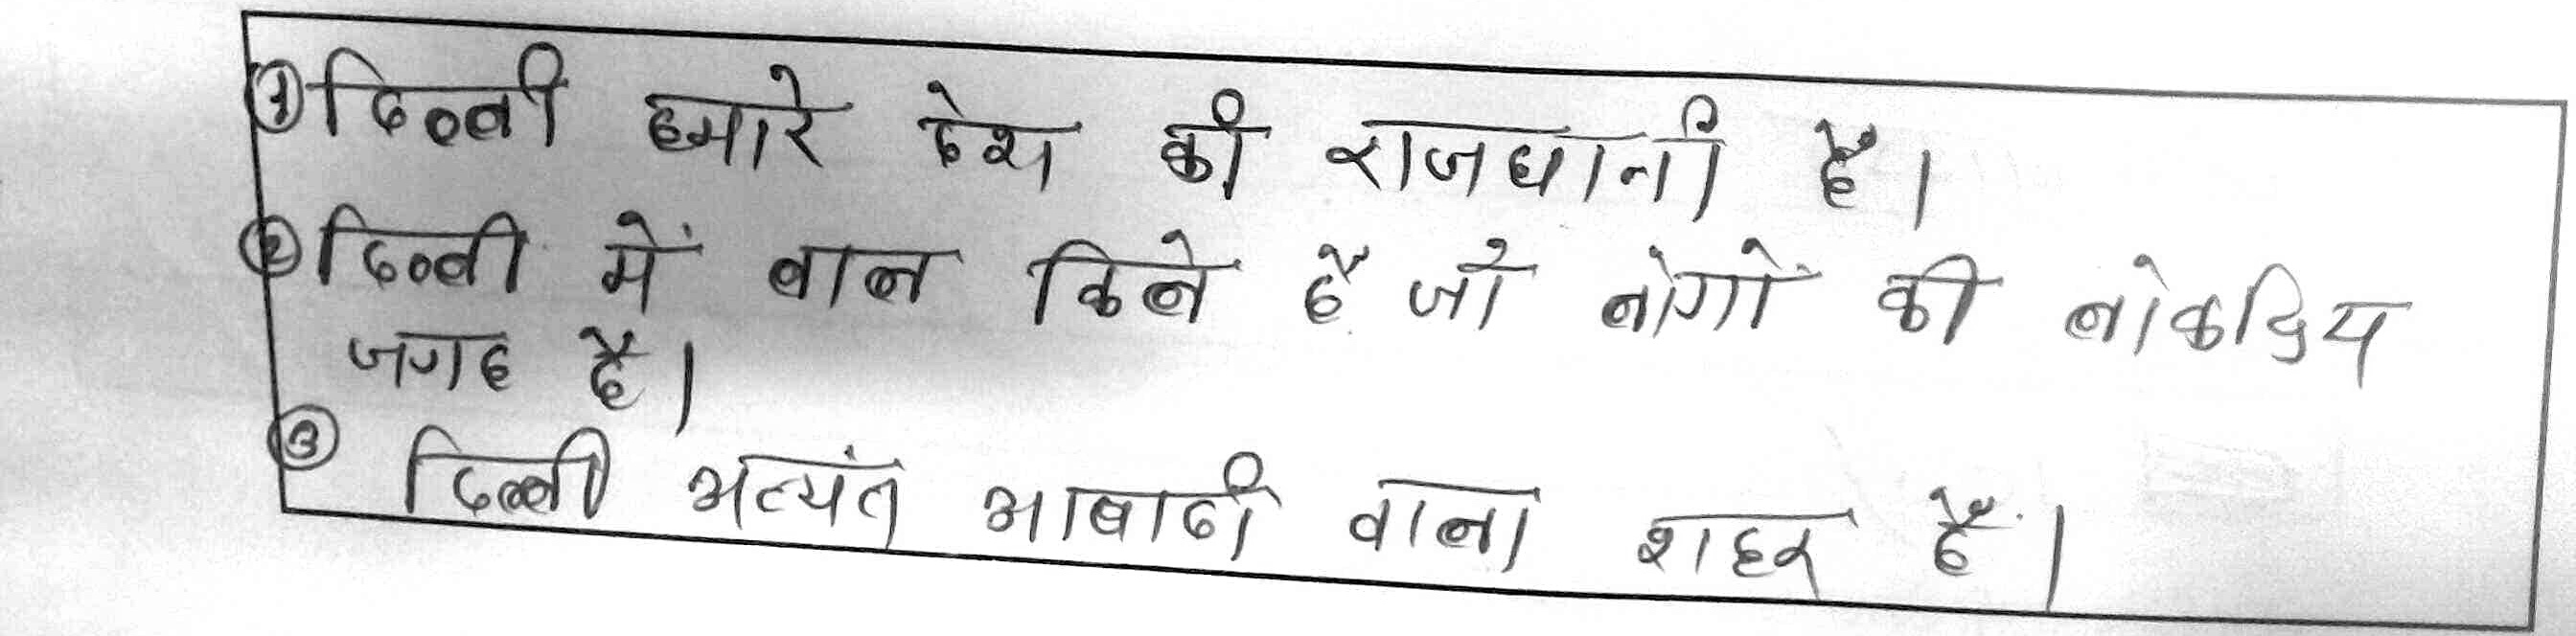 ① दिल्ली हमारे देश की राजधानी है।
② दिल्ली में लाल किले है जो लोगों की लोकप्रिय
जगह है।
③ दिल्ली अत्यंत आबादी वाला शहर है।